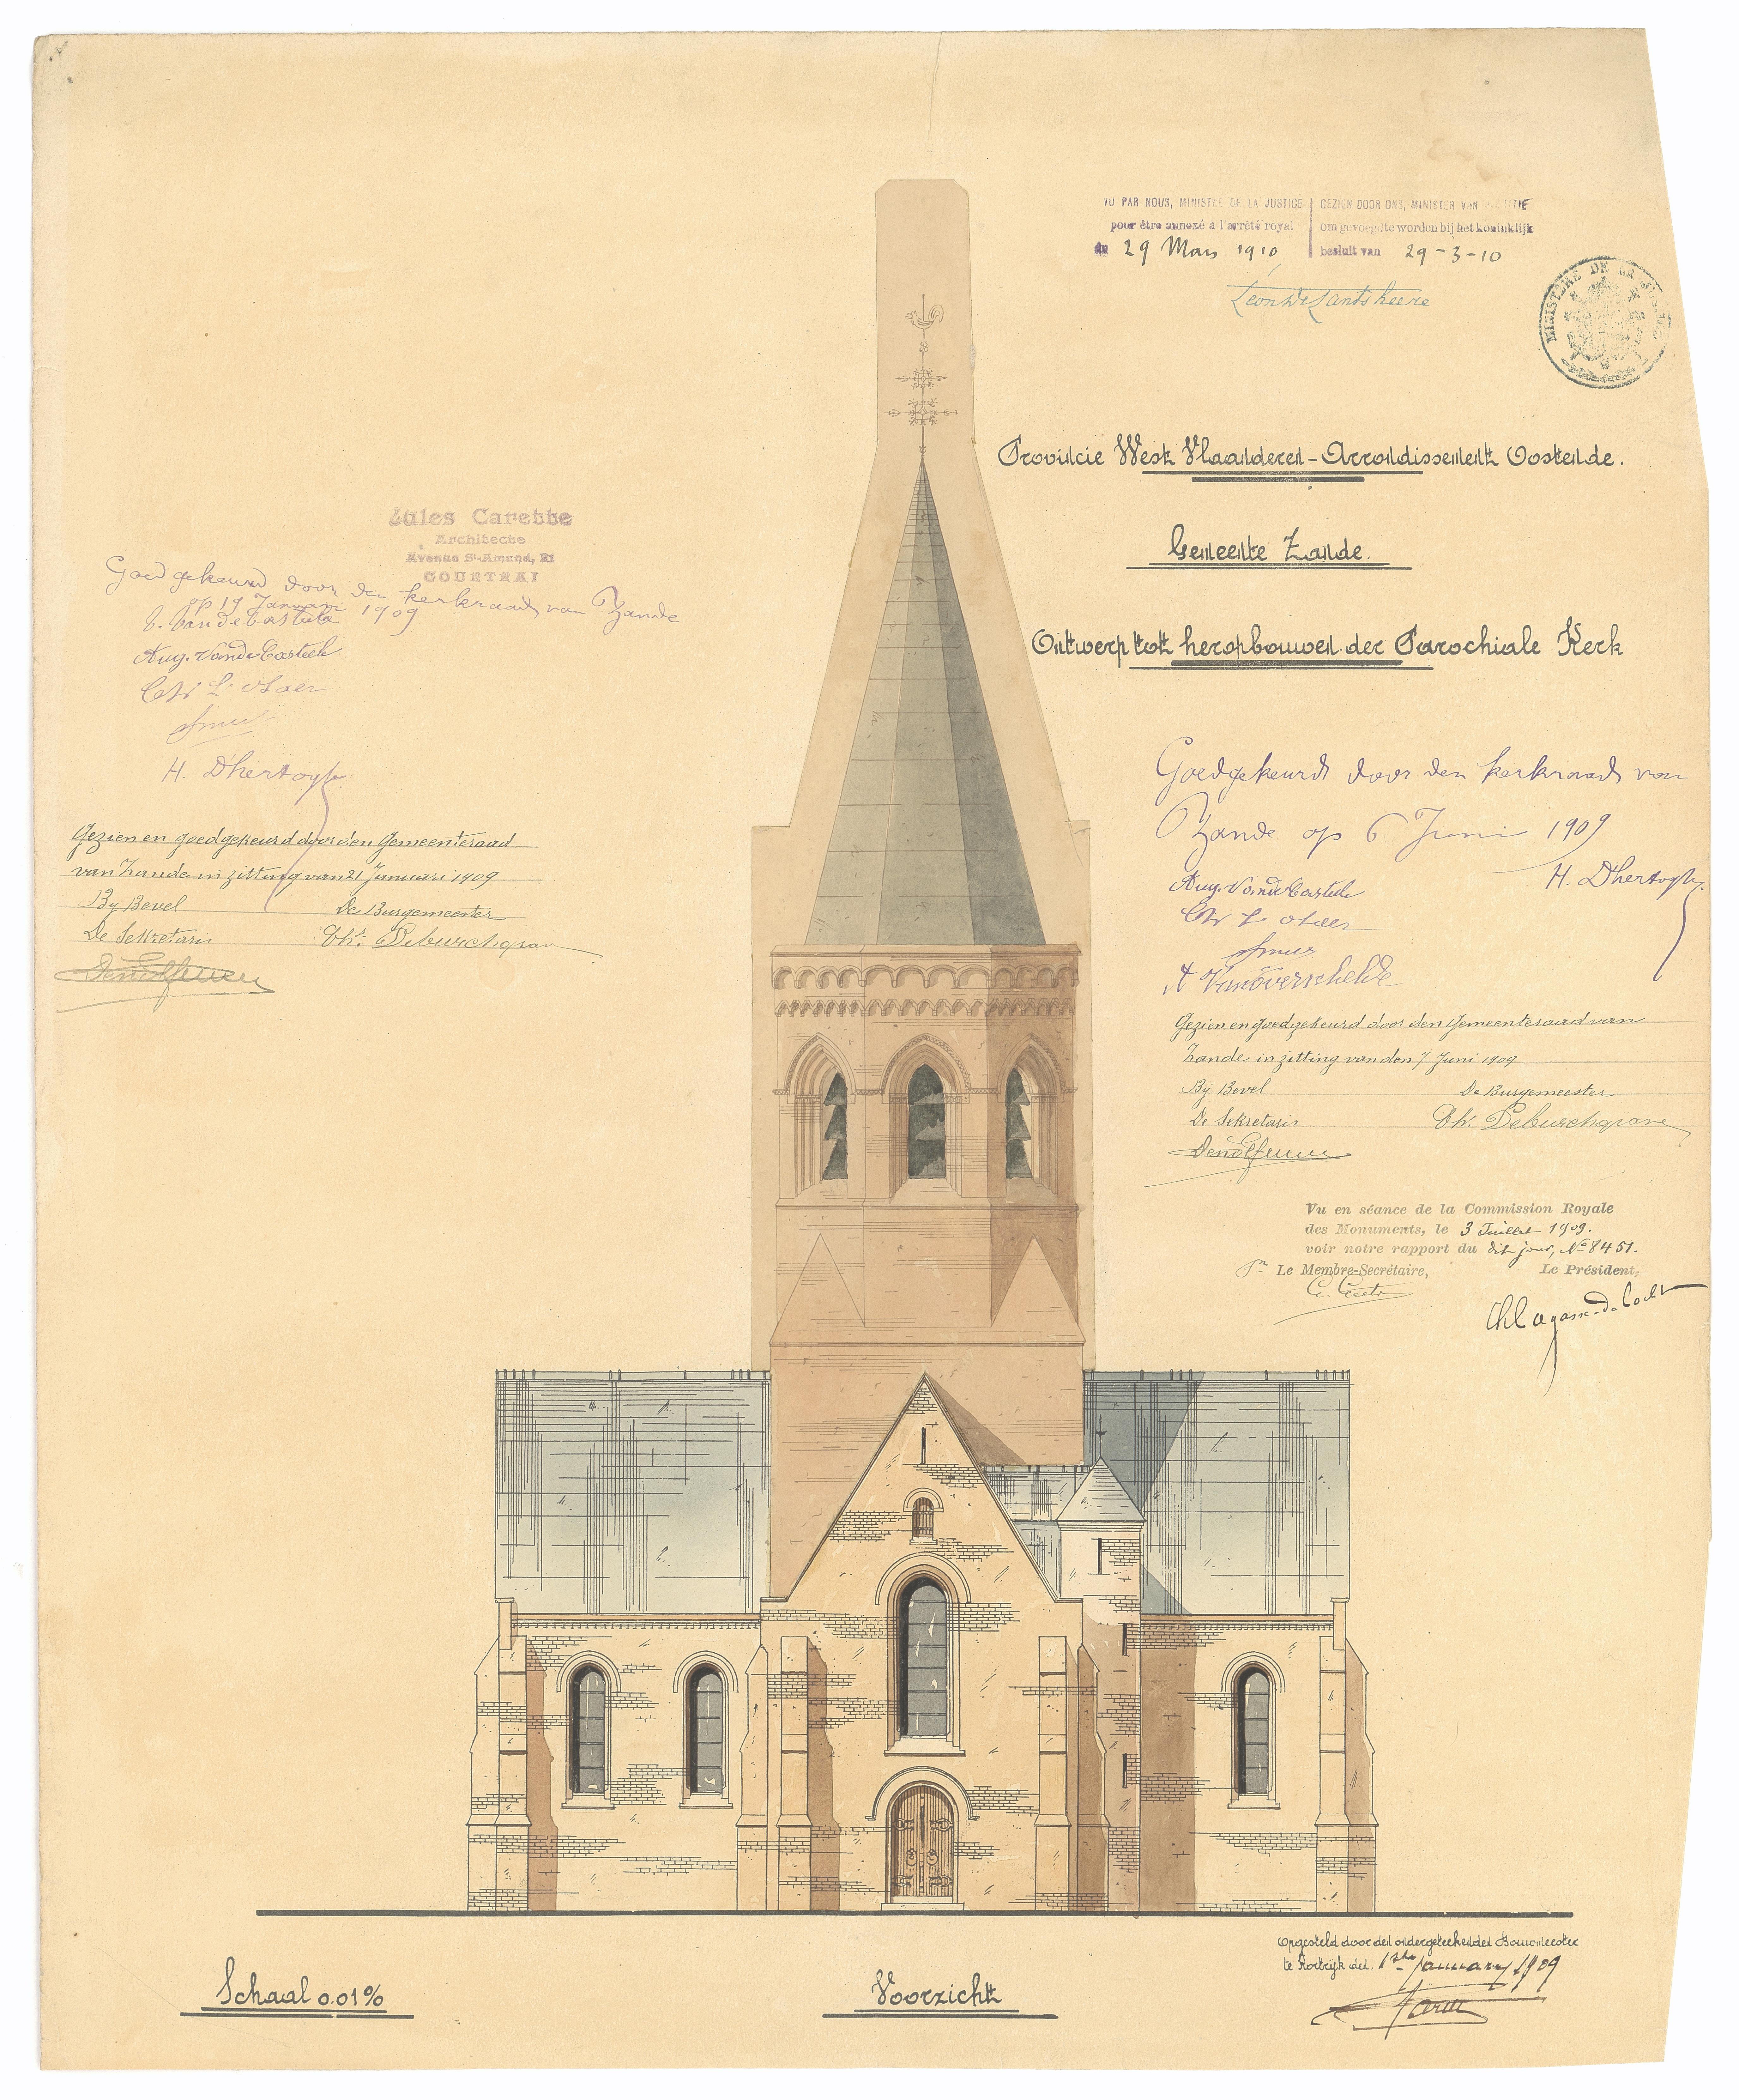 VU PAR NOUS, MINISTRE DE LA JUSTICE
pour être annexé à l'arrêté royal
du 29 Mars 1910
GEZIEN DOOR ONS, MINISTER VAN JUSTITIE
om gevoegd te worden bij het koninklijk
besluit van 29-3-10
Léon de Lantsheere
MINISTÈRE DE LA JUSTICE
Provincie West Vlaanderen - Arrondissement Oostende.
Gemeente Zande.
Ontwerp tot heropbouwen der Parochiale Kerk
Jules Carette
Architecte
Avenue St-Amand, 21
COURTRAI
Goedgekeurd door den kerkraad van Zande
op 19 Januari 1909
Aug. Vande Casteele
H. Dhertoghe
Gezien en goedgekeurd door den Gemeenteraad
van Zande in zitting van 21 Januari 1909
Bij Bevel
De Burgemeester
De Sekretaris
Ch. Deburchgrave
Goedgekeurd door den kerkraad van
Zande op 6 Juni 1909
H. Dhertoghe
Aug. Vande Casteele
A Vanoverschelde
Gezien en goedgekeurd door den Gemeenteraad van
Zande in zitting van den 7 Juni 1909
Bij Bevel
De Burgemeester
De Sekretaris
Ch. Deburchgrave
Vu en séance de la Commission Royale
des Monuments, le 3 Juillet 1909.
voir notre rapport du dit jour, No 8451.
Le Membre-Secrétaire,
Le Président,
Ch Lagasse-de Locht
Opgesteld door den ondergeteekenden Bouwmeester
te Kortrijk den 1ste January 1909
Schaal 0.01%
Voorzicht